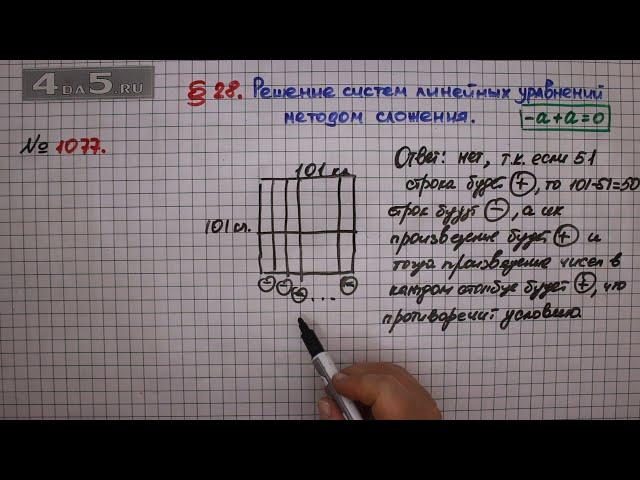 4DA5.RU
§ 28. Решение систем линейных уравнений
методом сложения. -a+a=0
№ 1077.
101 кл.
101 сл.
Ответ: нет, т.к. если 51
строка будет +, то 101-51=50
строк будут -, а их
произведение будет + и
тогда произведение чисел в
каждом столбце будет +, что
противоречит условию
- - - ... -